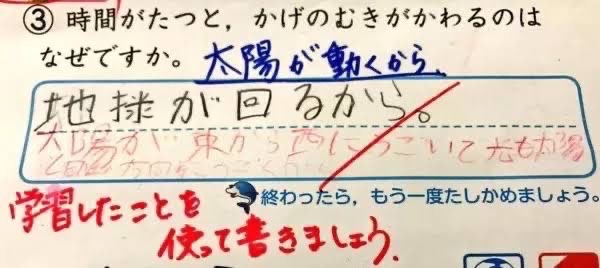 ③ 時間がたつと，かげのむきがかわるのは
なぜですか。
太陽が動くから。
地球が回るから。
太陽が東から西にうごいて
学習したことを
使って書きましょう。
終わったら，もう一度たしかめましょう。